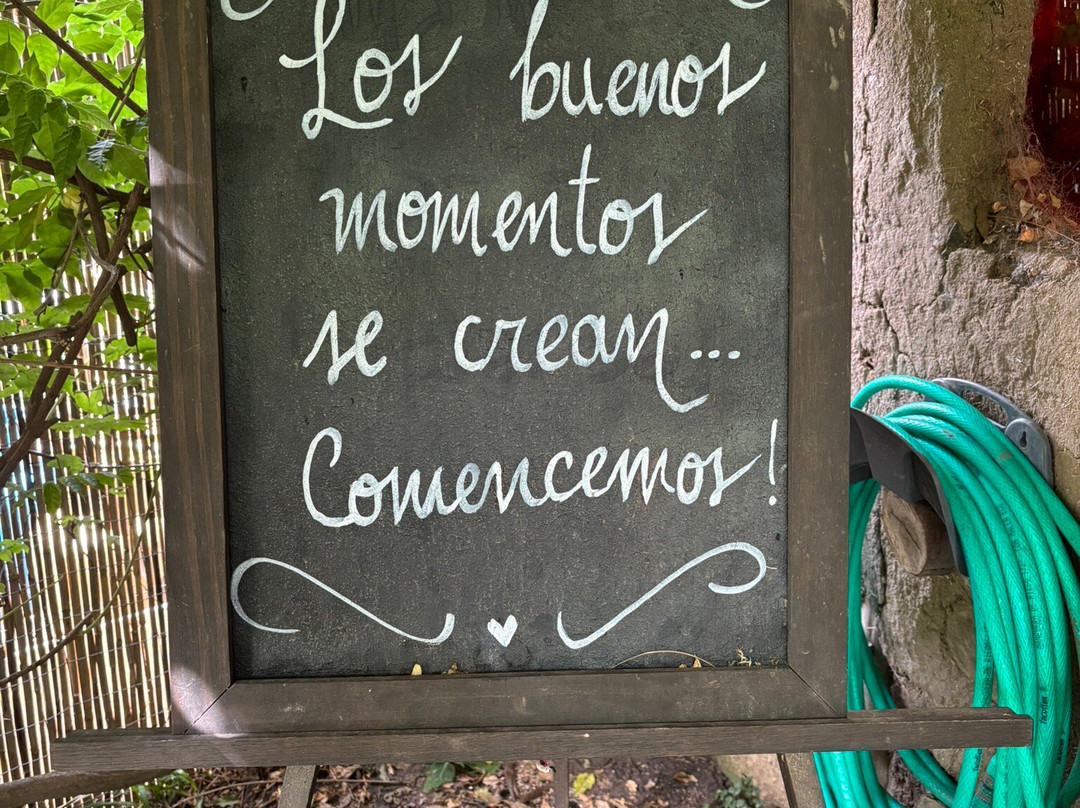 Los buenos
momentos
se crean...
Comencemos!